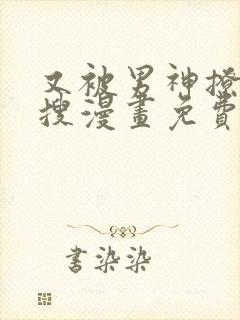 又被男神撩
搜漫畫免費
書染染